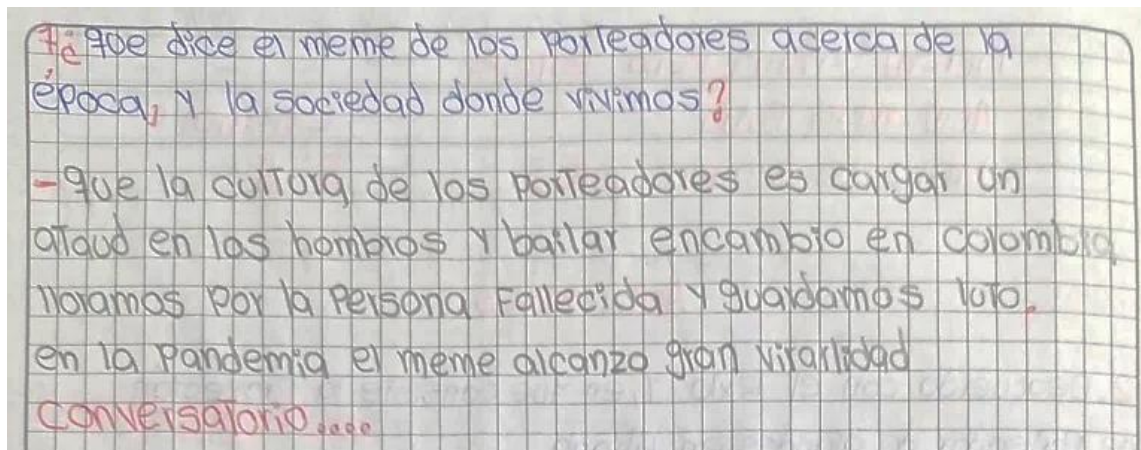 7è que dice el meme de los porteadores acerca de la
época, y la sociedad donde vivimos?
-que la cultura de los porteadores es cargar un
ataud en los hombros y bailar encambio en colombia
lloramos por la persona Fallecida y guardamos luto.
en la pandemia el meme alcanzo gran virarlidad
conversatorio....